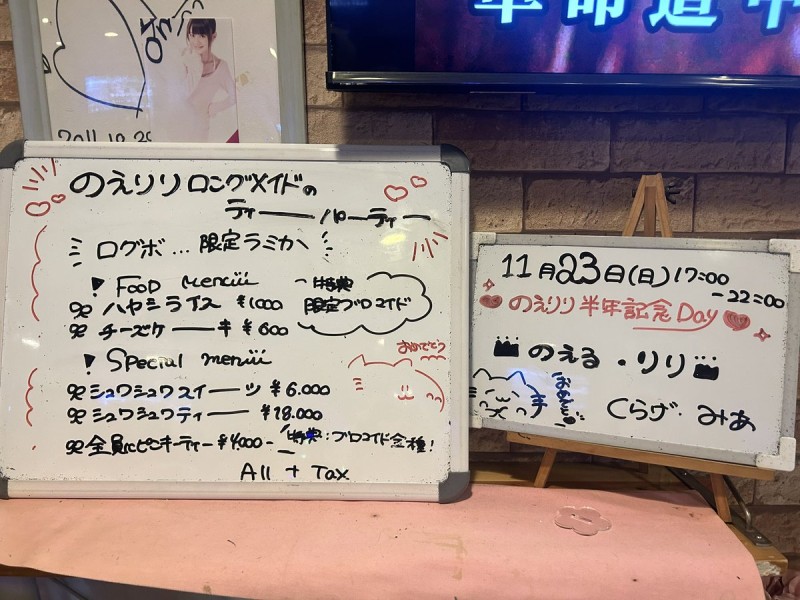 革命道中
2011.10.2
のえりりロングメイドの
ティーーパーティー
ログボ...限定ラミカ
! Food menu
ハヤシライス ¥1000
チーズケーキ ¥600
特典
限定ブロマイド
! Special menu
おめでとう
シュワシュワスイーツ ¥6.000
シュワシュワティー ¥18.000
全員にピンキーティー ¥4,000-
特典:ブロマイド全種!
All + Tax
11月23日(日) 17:00
-22:00
のえりり半年記念Day
のえる・りり
おめでとう
くらげ・みあ